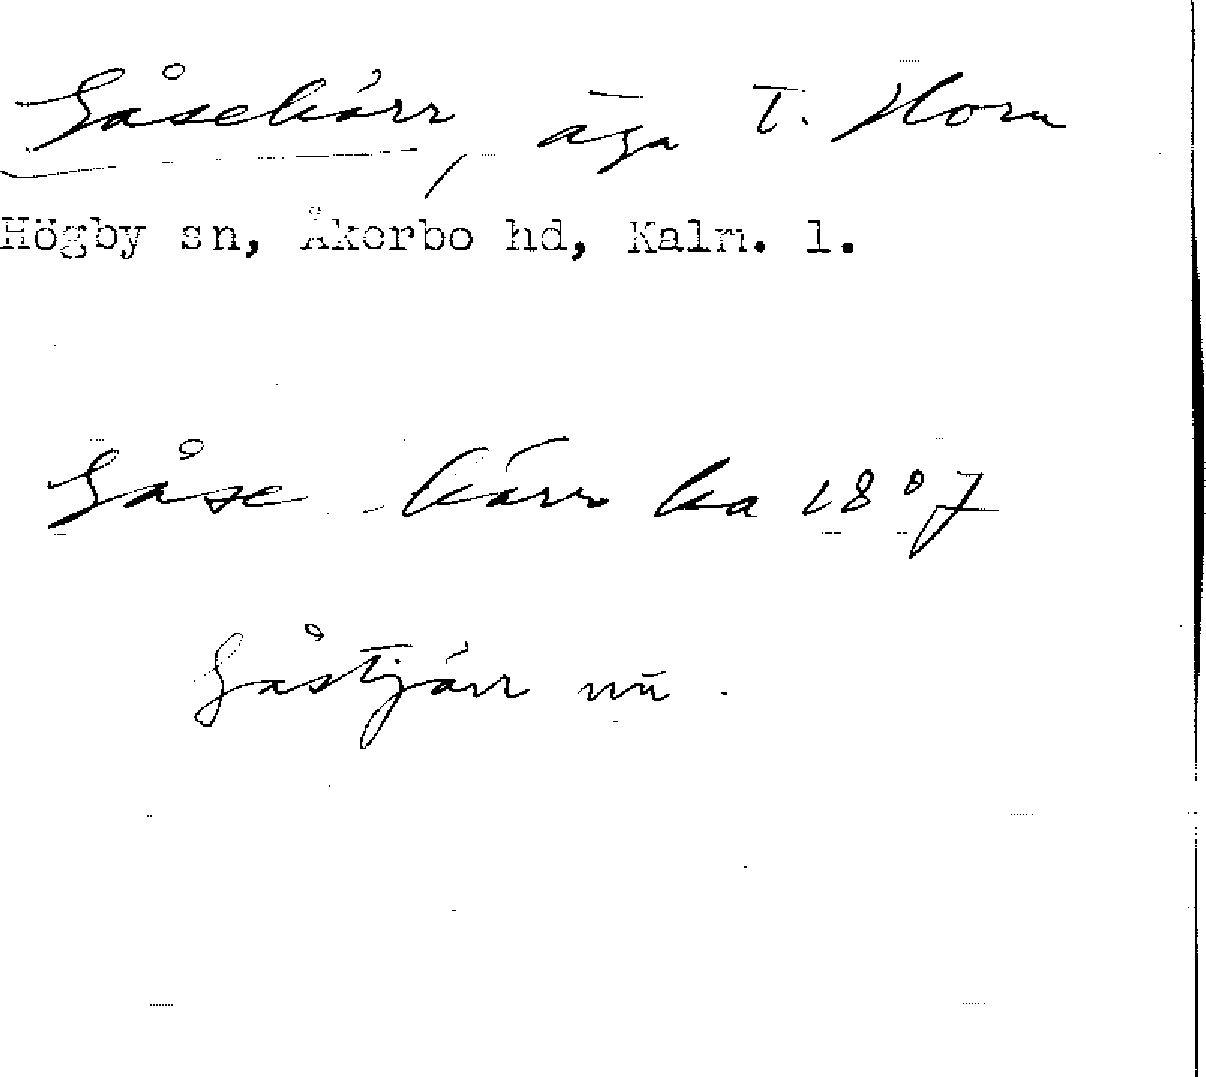 Gåsekärr, äga T. Horn
Högby sn, Åkerbo hd, Kalm. l.
Gåse kärr ka 1807
Gåstjärr nu.